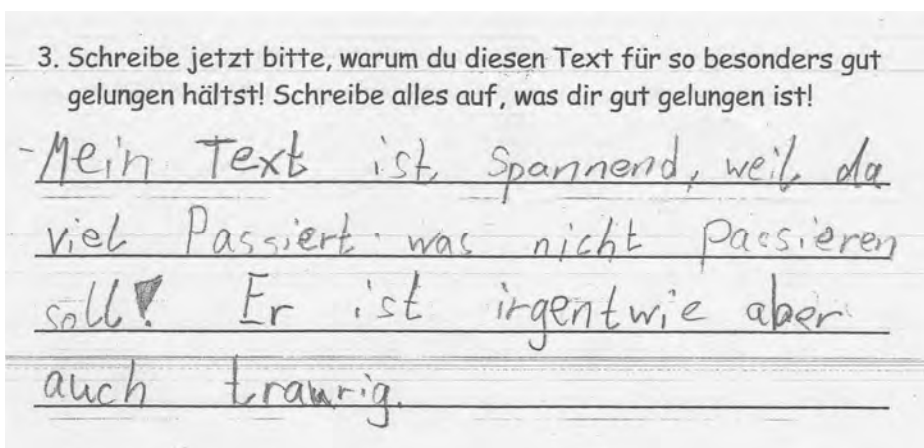 3. Schreibe jetzt bitte, warum du diesen Text für so besonders gut
gelungen hältst! Schreibe alles auf, was dir gut gelungen ist!
-Mein Text ist Spannend, weil da
viel Passiert was nicht Passieren
soll! Er ist irgentwie aber
auch traurig.